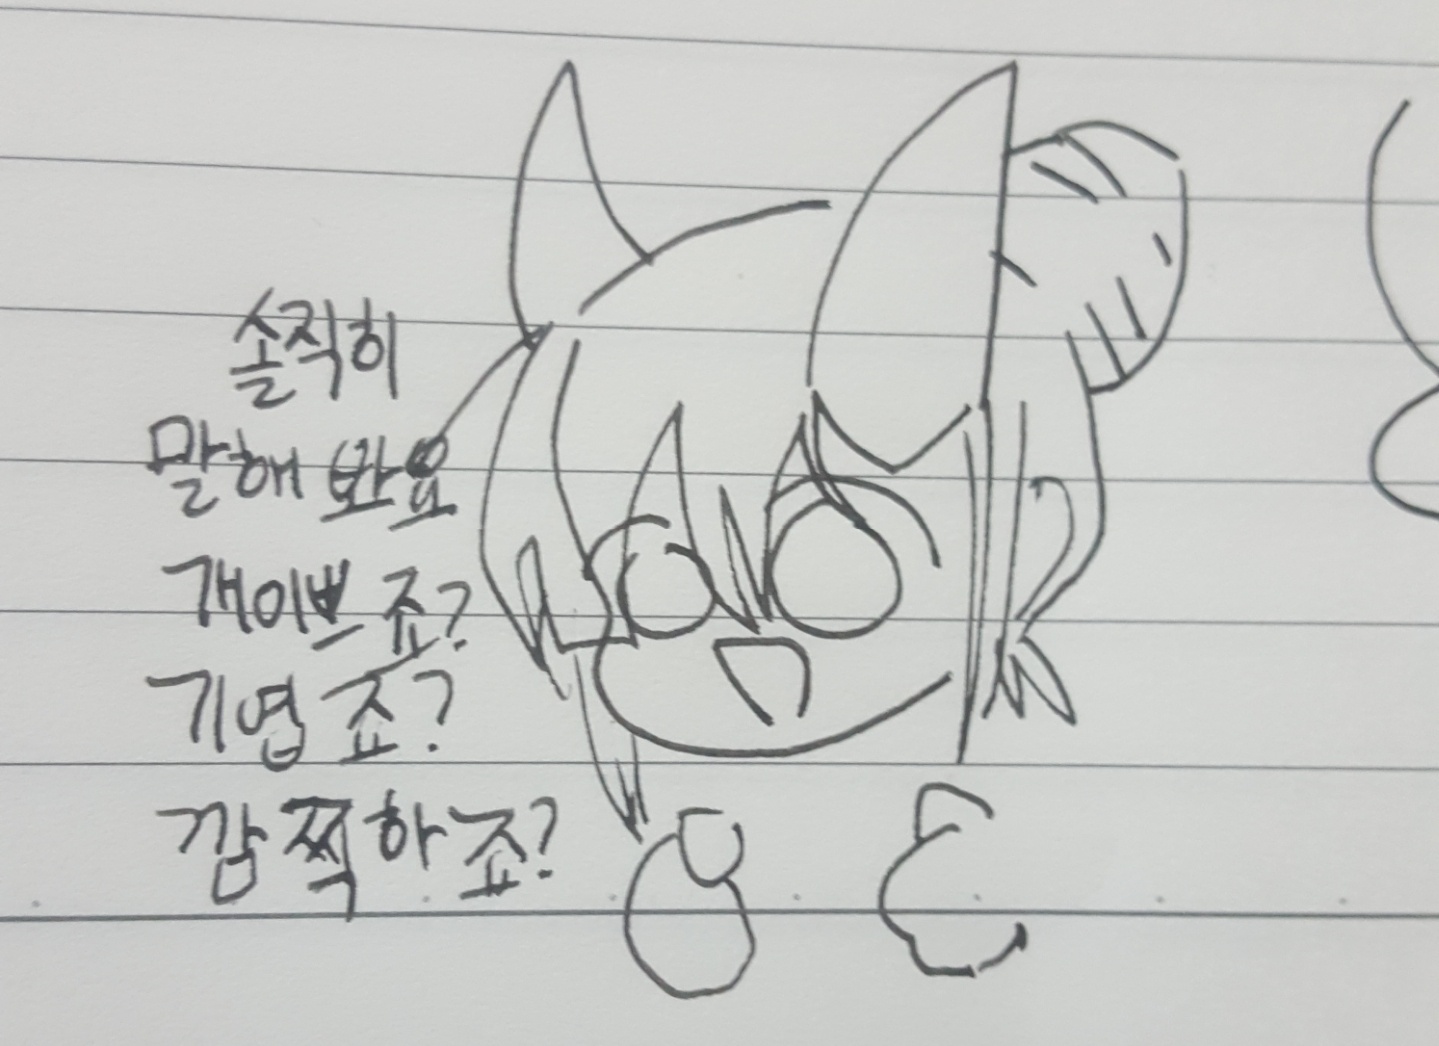 솔직히
말해 봐요
개이쁘죠?
기엽죠?
깜찍하죠?